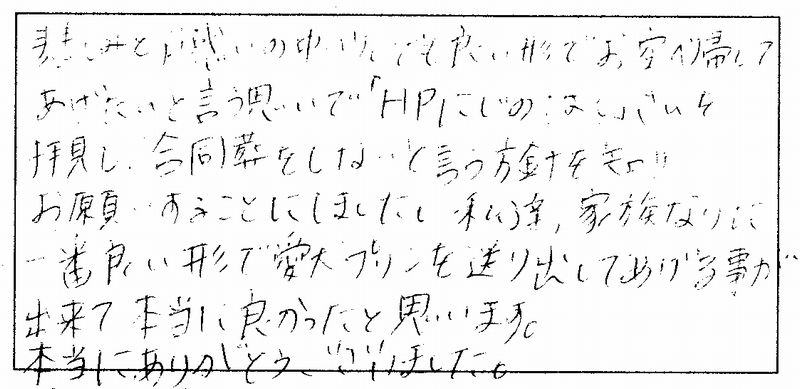 悲しみと戸惑いの中、少しでも良い形でお空へ帰して
あげたいと言う思いで「HPにじのはし」さんを
拝見し、合同葬をしないと言う方針を知り
お願いすることにしました。私達、家族なりに
一番良い形で愛犬プリンを送り出してあげる事が
出来て本当に良かったと思います。
本当にありがとうございました。